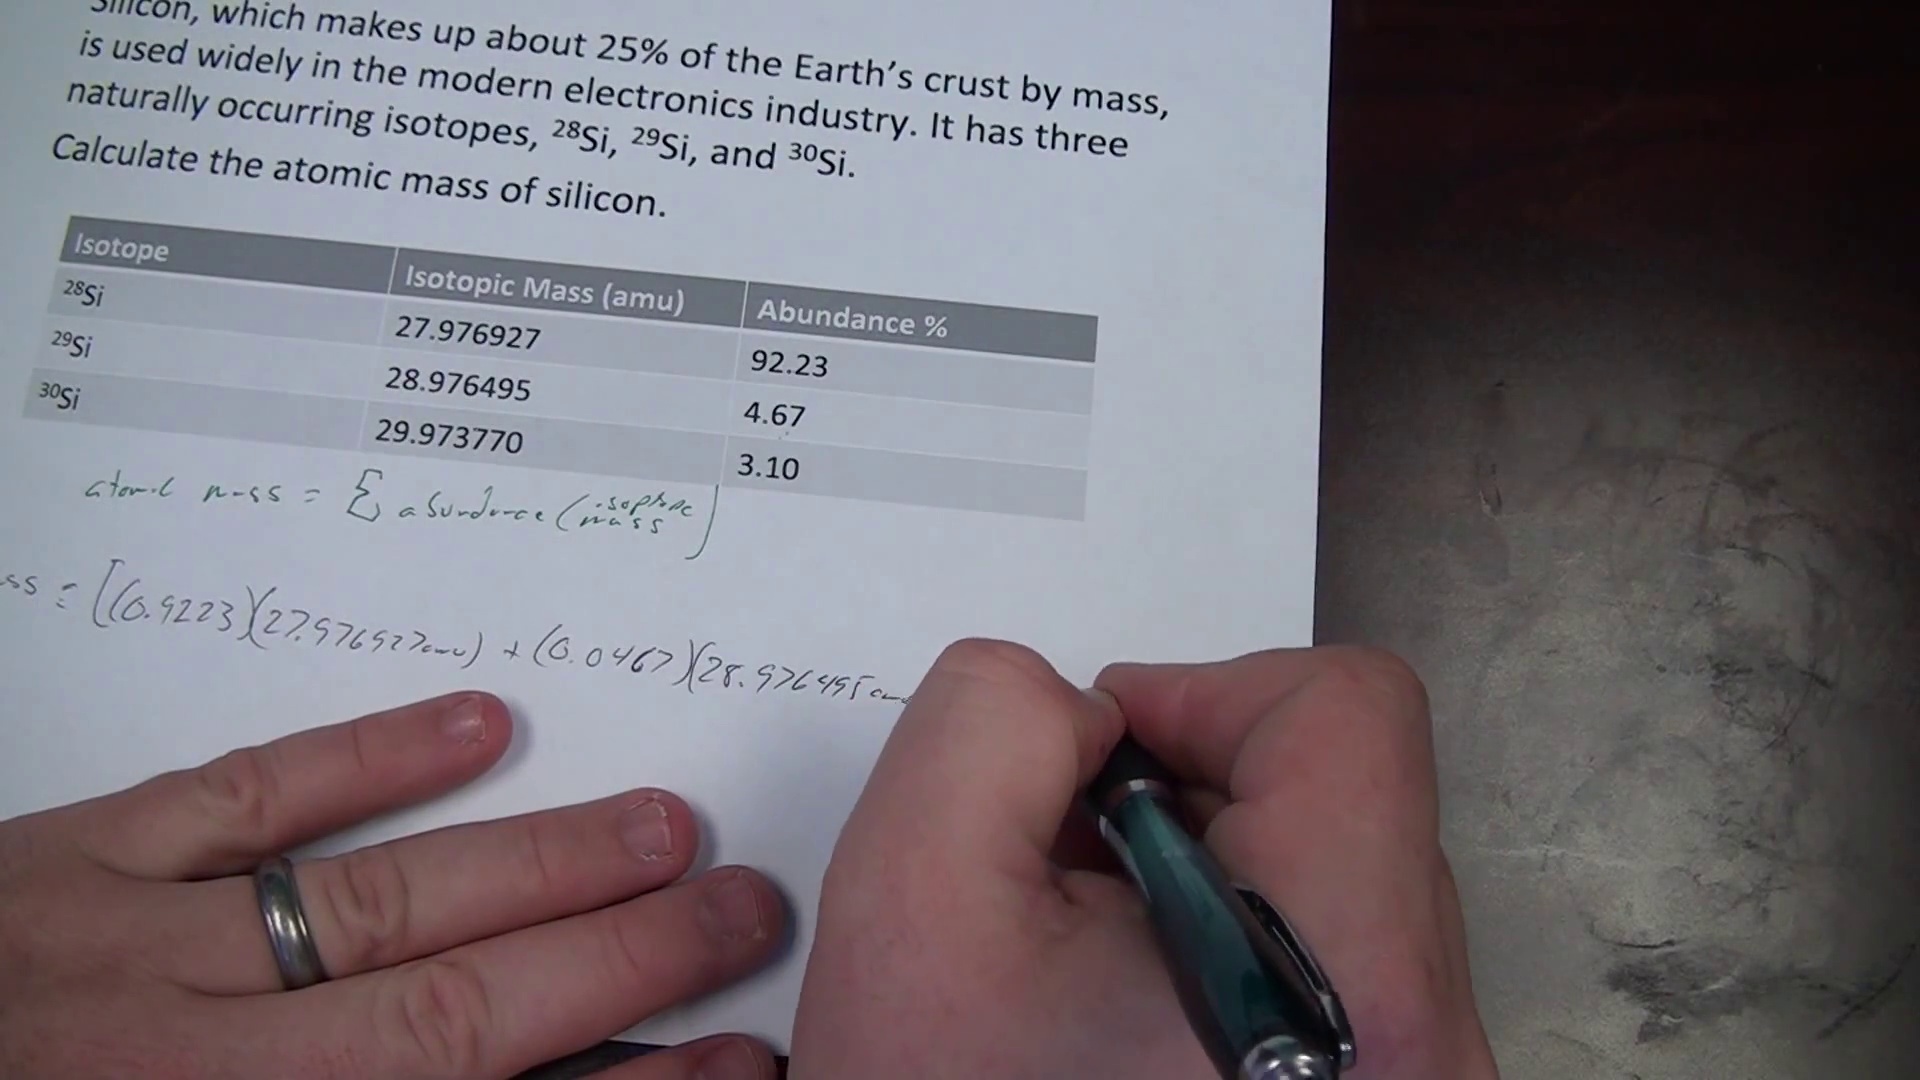 Silicon, which makes up about 25% of the Earth's crust by mass,
is used widely in the modern electronics industry. It has three
naturally occurring isotopes, ²⁸Si, ²⁹Si, and ³⁰Si.
Calculate the atomic mass of silicon.
Isotope Isotopic Mass (amu) Abundance %
²⁸Si 27.976927 92.23
²⁹Si 28.976495 4.67
³⁰Si 29.973770 3.10
atomic mass = Σ abundance (isotope mass)
ss = [(0.9223)(27.976927amu) + (0.0467)(28.976495amu